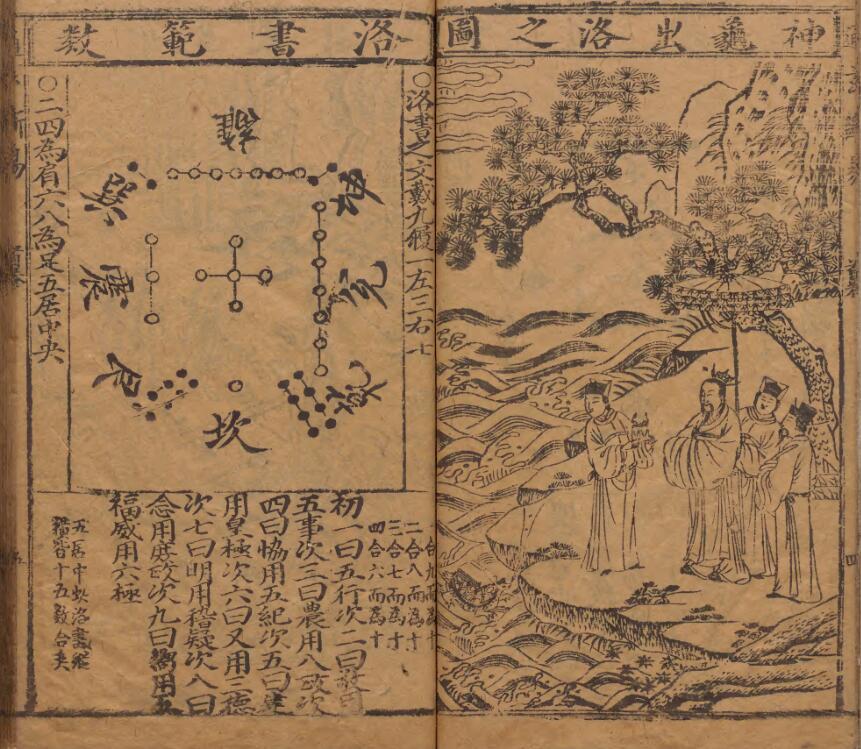 神龜出洛之圖
洛書範數
○洛書之文戴九履一左三右七
離
坤
兌
乾
坎
艮
震
巽
○二四為肩六八為足五居中央
一合九而為十
二合八而為十
三合七而為十
四合六而為十
初一曰五行次二曰敬用
五事次三曰農用八政次
四曰恊用五紀次五曰建
用皇極次六曰乂用三德
次七曰明用稽疑次八曰
念用庶政次九曰嚮用五
福威用六極
五居中央洛書縱
橫皆十五數合矣